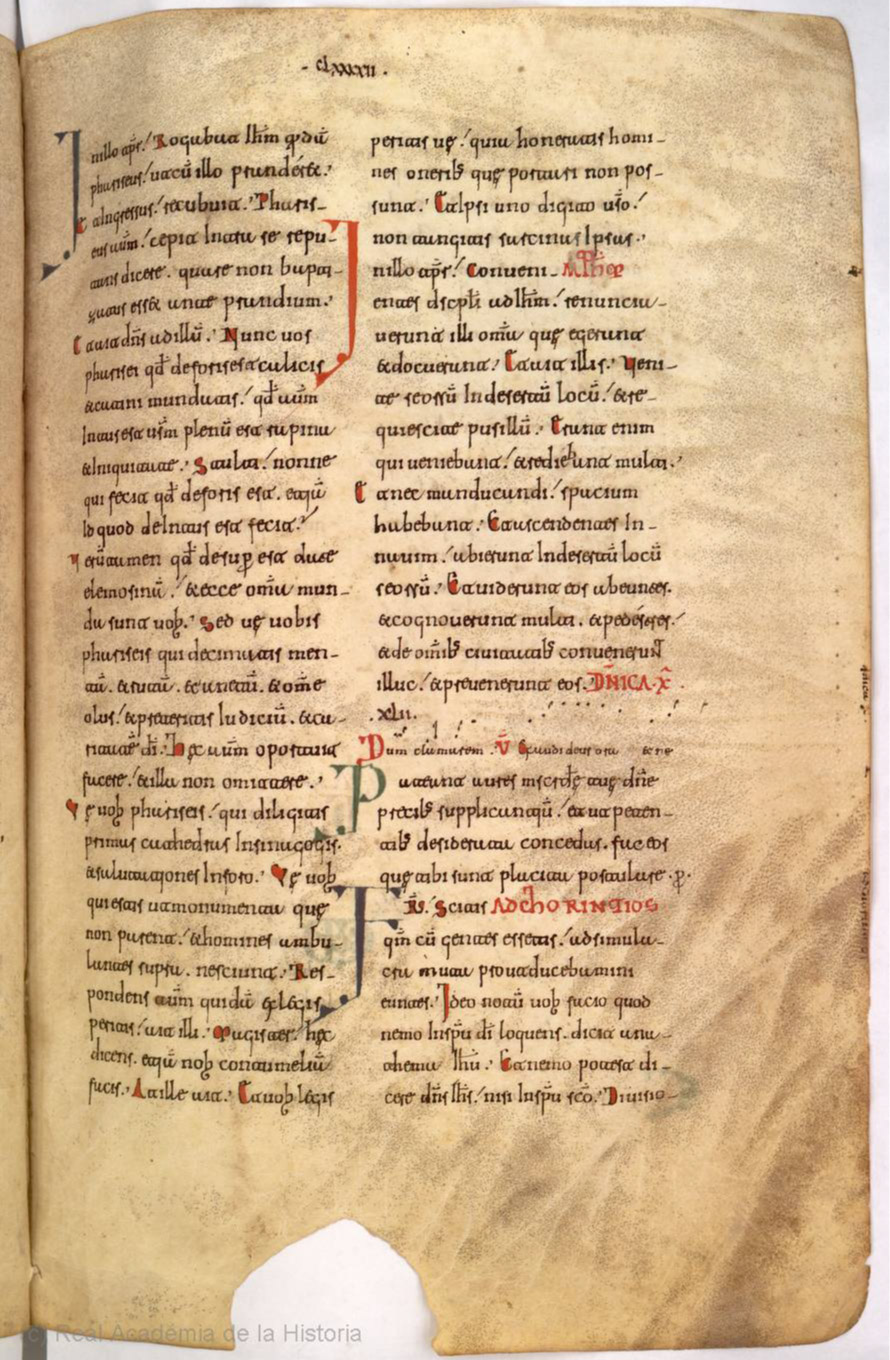 · clxxxxii ·
In illo t͞pr̃. Rogabat ih̃m q̃dã
phariseus. ut cũ illo pranderet.
Et ingressus. recubuit. Pharis-
eus autẽ. cepit intra se repu-
tans dicere. quare non bapti-
zatus esset ante prandium.
Et ait dñs ad illũ. Nunc vos
pharisei qđ deforis est calicis
et catini mundatis. qđ autẽ
intus est vr̃m plenũ est rapina
et iniquitate. Stulti. nonne
qui fecit qđ deforis est. etiã
id quod deintus est fecit.
Verũtamen qđ desuꝑ est date
elemosinã. et ecce om̃ia mun-
da sunt vob̃. Sed vę vobis
phariseis qui decimatis men-
tã. et rutã. et anetũ. et om̃e
olus. et preteritis iudiciũ. et ca-
ritatẽ dĩ. Hęc autẽ oportuit
facere. et illa non omittere.
Vę vob̃ phariseis. qui diligitis
primas cathedras in sinagogis.
et salutationes in foro. Vę vob̃
qui estis ut monumenta quę
non parent. et homines ambu-
lantes supra. nesciunt. Res-
pondens autẽ quidã ex legis
peritis. ait illi. Magister. hęc
dicens. etiã nob̃ contumeliã
facis. At ille ait. Et vob̃ legis
peritis vę. quia honeratis homi-
nes onerib̃ quę portari non pos-
sunt. Et ipsi uno digito vr̃o.
non tangitis sarcinas ipsas.
In illo t͞pr̃. Conveni-
entes discp̃li ad ih̃m. renuncia-
verunt illi om̃ia quę egerunt
et docuerunt. Et ait illis. Veni-
te seorsũ in desertũ locũ. et re-
quiescite pusillũ. Erant enim
qui veniebant. et rediebant multi.
Et nec manducandi. spacium
habebant. Et ascendentes in-
navim. abierunt in desertũ locũ
seorsũ. Et viderunt eos abeuntes.
et cognoverunt multi. et pedestres.
et de om̃ib̃ civitatib̃ convenerunt
illuc. et prevenerunt eos. DÑICA. X̃
· xlii ·
Dum clamarem. V̄ Exaudi deus
Pateant aures miscd̃ę tuę dñe
precib̃ supplicantiũ. et ut peten-
tib̃ desiderata concedas. fac eos
quę tibi sunt placita postulare. ꝑ.
Fr̃s. Scitis AD CHORINTIOS
qm̃ cũ gentes essetis. ad simula-
cra muta prout ducebamini
euntes. Ideo notũ vob̃ facio quod
nemo in spũ dĩ loquens. dicit ana-
thema ih̃u. Et nemo potest di-
cere dñs ih̃s. nisi in spũ scõ. Divisio-
(c) Real Academia de la Historia